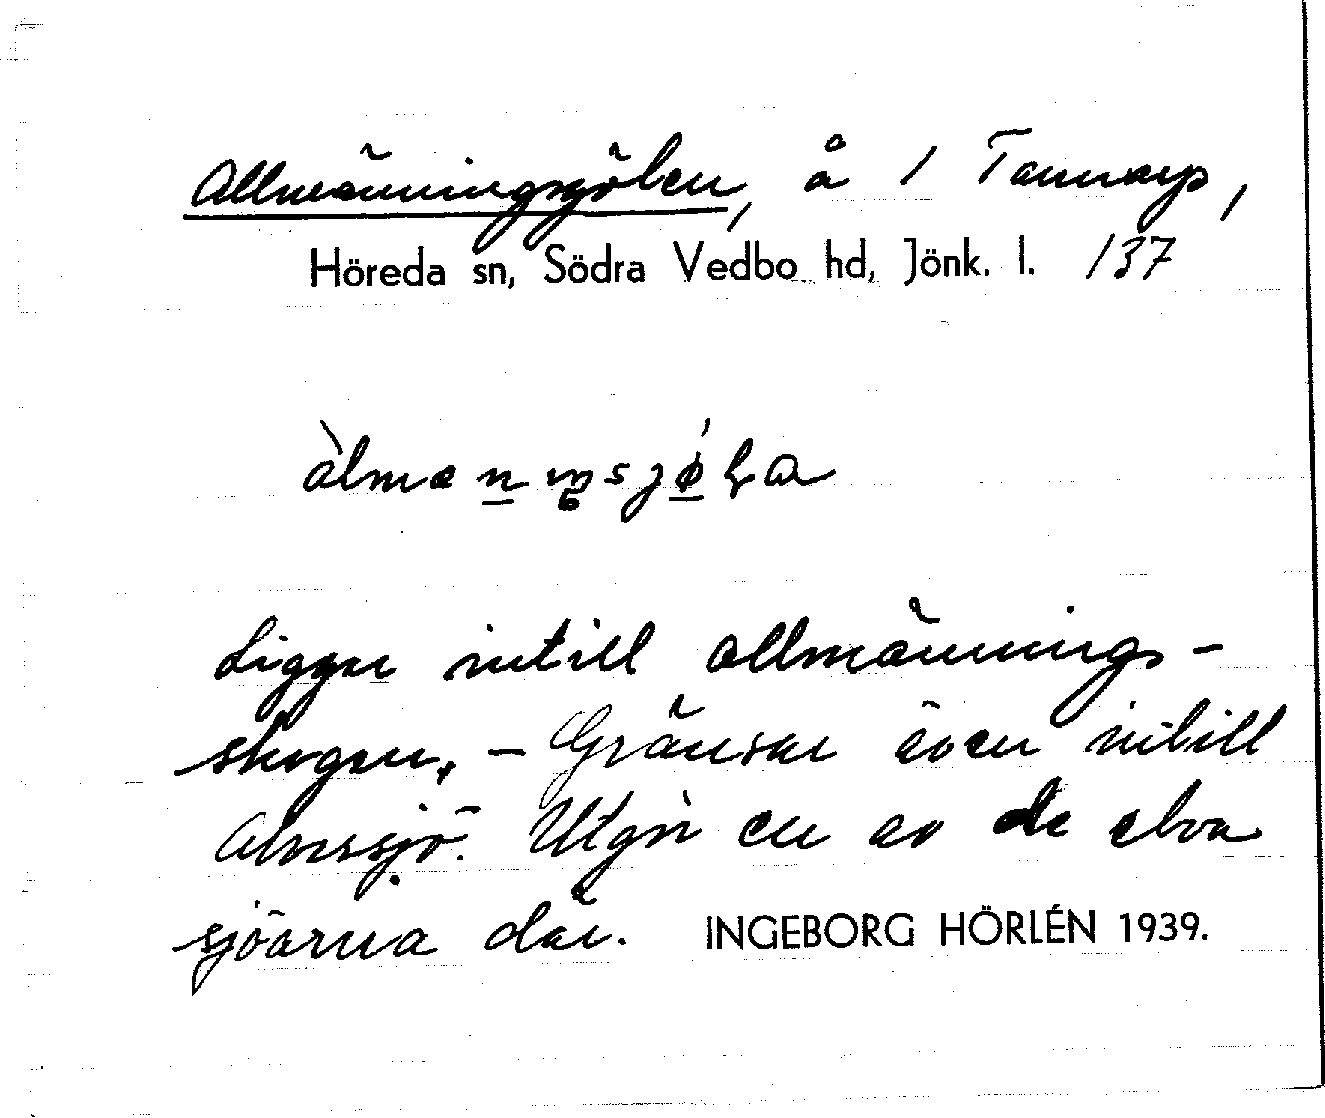 Allmänningsgölen, å 1 Tannarp,
Höreda sn, Södra Vedbo hd, Jönk. l. 137
Ligger intill allmännings-
skogen, - Gränsar även intill
Almssjö. Utgör en av de elva
sjöarna där. INGEBORG HÖRLÉN 1939.